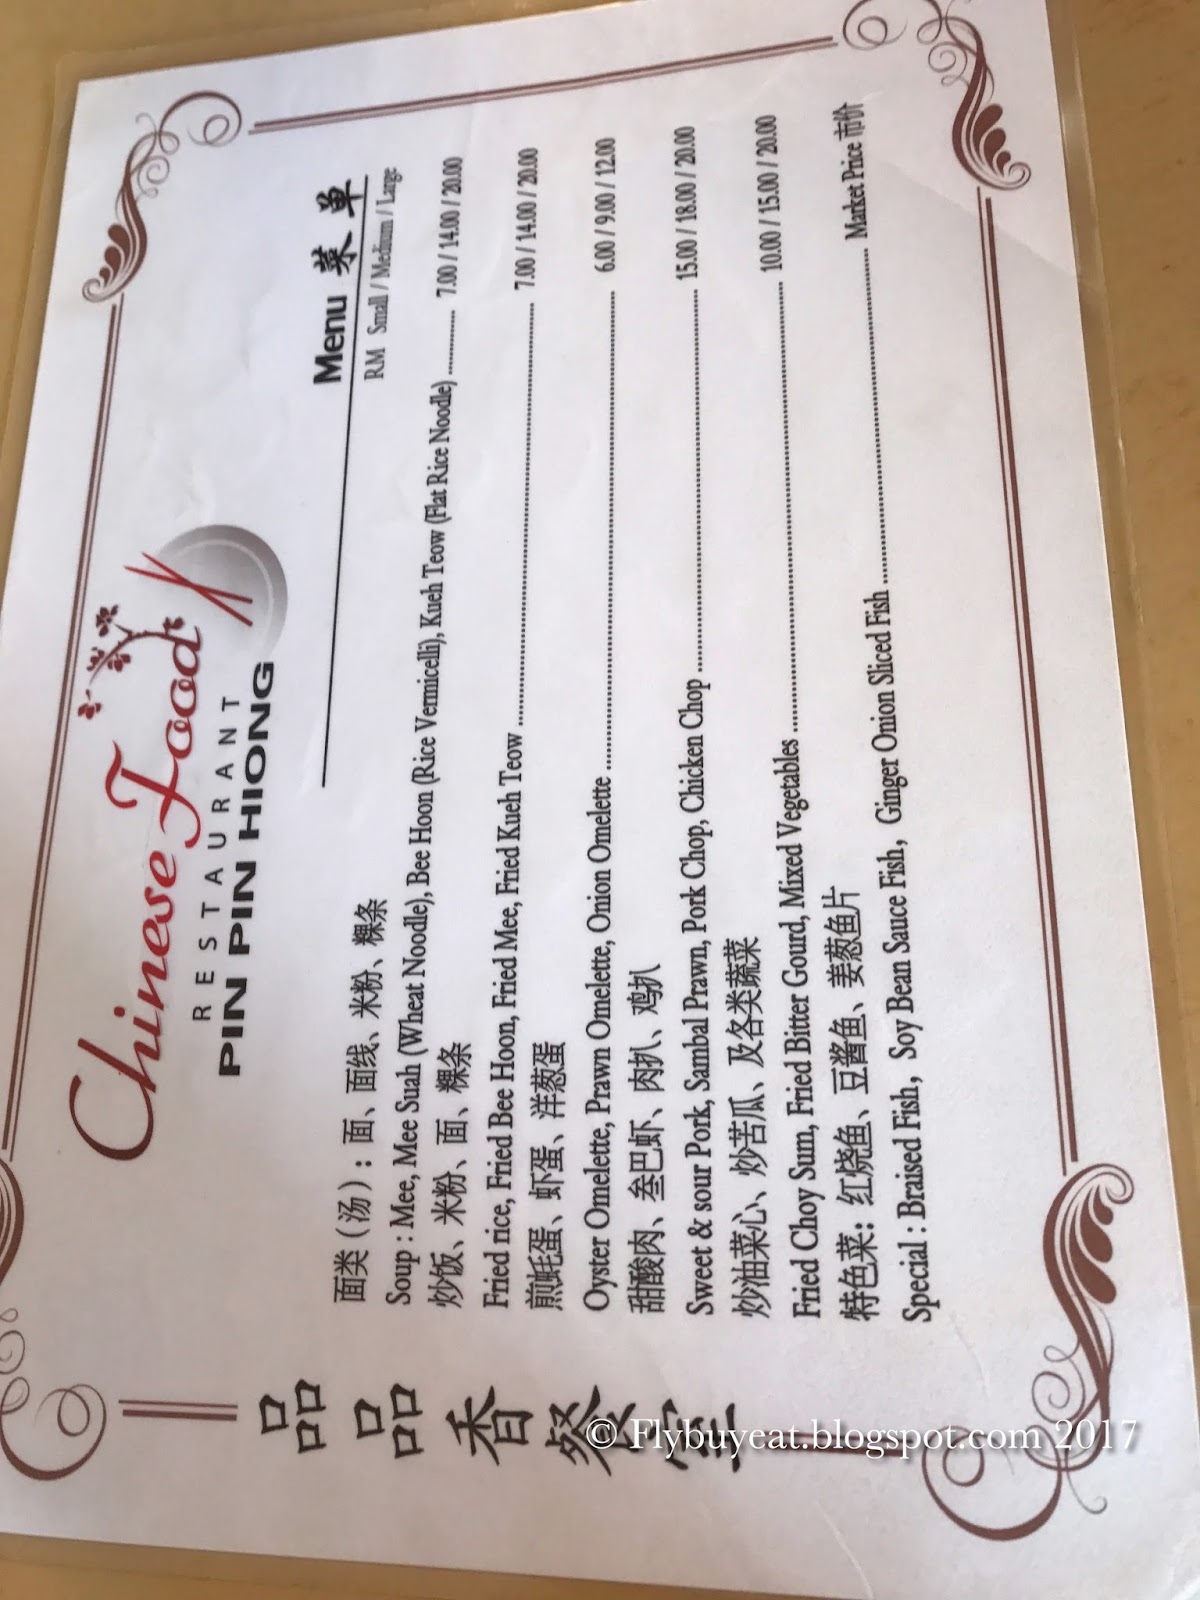 Chinese Food
RESTAURANT
PIN PIN HIONG
品品香餐室
Menu 菜单
RM Small / Medium / Large
面类 (汤) : 面、面线、米粉、粿条
Soup : Mee, Mee Suah (Wheat Noodle), Bee Hoon (Rice Vermicelli), Kueh Teow (Flat Rice Noodle) ............ 7.00 / 14.00 / 20.00
炒饭、米粉、面、粿条
Fried rice, Fried Bee Hoon, Fried Mee, Fried Kueh Teow ............ 7.00 / 14.00 / 20.00
煎蚝蛋、虾蛋、洋葱蛋
Oyster Omelette, Prawn Omelette, Onion Omelette ............ 6.00 / 9.00 / 12.00
甜酸肉、叁巴虾、肉扒、鸡扒
Sweet & sour Pork, Sambal Prawn, Pork Chop, Chicken Chop ............ 15.00 / 18.00 / 20.00
炒油菜心、炒苦瓜、及各类蔬菜
Fried Choy Sum, Fried Bitter Gourd, Mixed Vegetables ............ 10.00 / 15.00 / 20.00
特色菜: 红烧鱼、豆酱鱼、姜葱鱼片
Special : Braised Fish, Soy Bean Sauce Fish, Ginger Onion Sliced Fish ............ Market Price 市价
© Flybuyeat.blogspot.com 2017